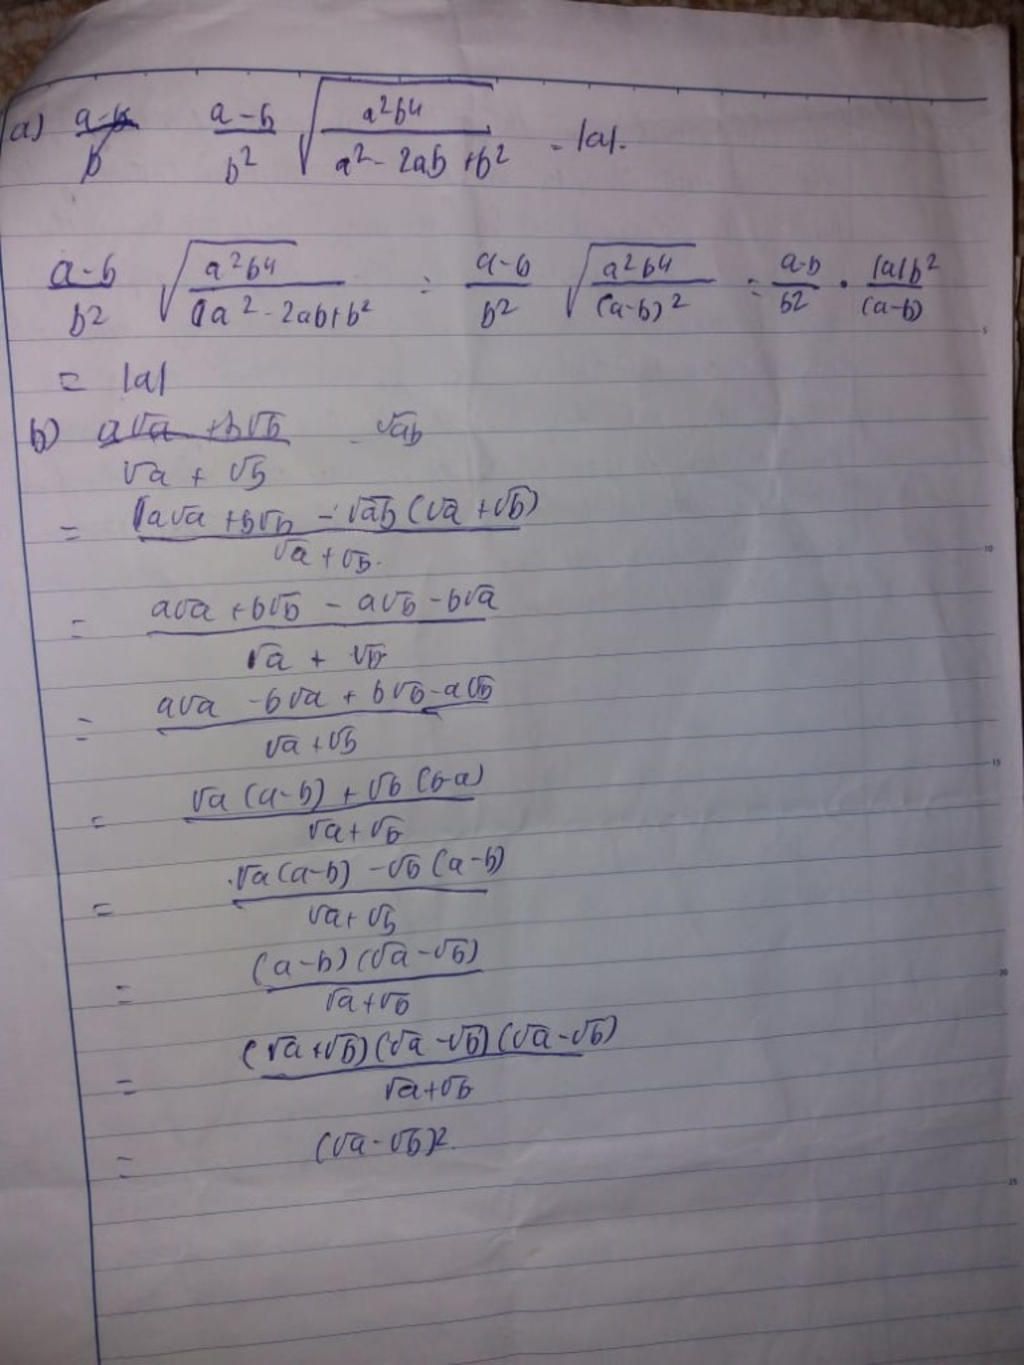 a) a-b/b a-b/b² √(a²b4/a²-2ab+b²) = |a|.
a-b/b² √(a²b4/(a²-2ab+b²) = a-b/b² √(a²b4/(a-b)²) = a-b/b2 . |a|b²/(a-b)
= |a|
b) a√a + b√b/√a + √b - √ab
= (a√a + b√b - √ab (√a + √b)/√a + √b.
= a√a + b√b - a√b - b√a/√a + √b
= a√a - b√a + b√b - a√b/√a + √b
= √a (a-b) + √b (b-a)/√a + √b
= √a (a-b) - √b (a-b)/√a + √b
= (a-b) (√a - √b)/√a + √b
= (√a + √b) (√a - √b) (√a - √b)/√a + √b
= (√a - √b)².
5
10
15
20
25